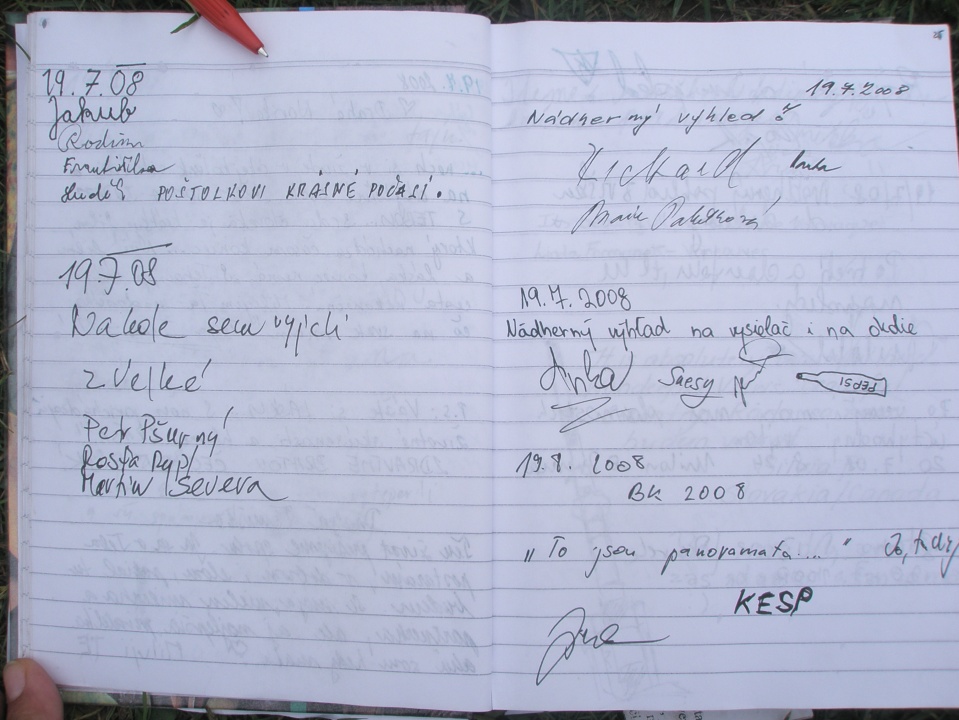 19.7.08
Jakub
Radim
Františka
Luděk POŠTOLKOVI KRÁSNÉ POČASÍ.
19.7.08
Nakole sem vyjeli
z Velké
Petr Pšurný
Martin Ševera
19.7.2008
Nádherný výhled
Richard Lenka
Marie
19.7.2008
Nádherný výhľad na vysielač i na okolie
Anka Saesy
PEPSI
19.8. 2008
BK 2008
„To jsou panoramata...."
KESP